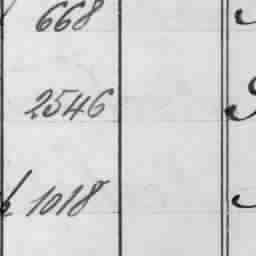 668
2546
1018